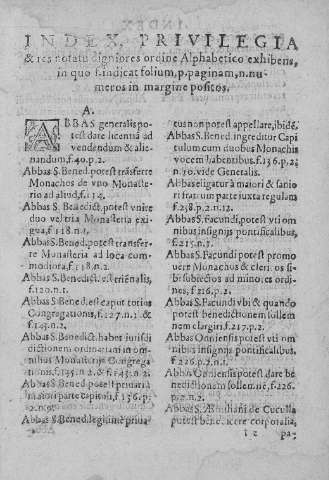 INDEX, PRIVILEGIA
& res notatu digniores ordine Alphabetico exhibens,
in quo f. indicat folium, p. paginam, n. nu-
meros in margine positos.
A.
ABBAS generalis po-
test dare licentiã ad
vendendum & alie-
nandum, f.40.p.2.
Abbas S. Bened. potest trãsferre
Monachos de vno Monaste-
rio ad aliud, f.114.
Abbas S. Benedict. potest vnire
duo vel tria Monasteria exi-
gua, f.118.n.1.
Abbas S. Bened. potest transfer-
re Monasteria ad loca com-
modiora, f.118.n.2.
Abbas S. Benedict. est
f.120.n.1.
Abbas S. Bened. est caput totius
Congregationis, f.127.n.1. &
f.145.n.2.
Abbas S. Benedict. habet jurisdi-
ctionem ordinariam in om-
nibus Monasterijs Congrega-
tionis, f.135.n.2. & f.145.n.2.
Abbas S. Bened. potest priuari à
maiori parte capituli, f.136.p.
2.n.9.
Abbas S. Bened. legitimè priua-
tus non potest appellare, ibidẽ.
Abbas S. Bened. ingreditur Capi
tulum cum duobus Monachis
vocem habentibus, f.136.p.2.
n.30. vide Generalis.
Abbas eligatur à maiori & sanio
ri fratrum parte juxta regulam
f.238.p.2.n.12.
Abbas S. Facundi, potest vti om
nibus insignijs pontificalibus,
f.215.n.3.
Abbas S. Facundi potest promo
uere Monachos & cleri os si-
bi subiectos ad minores ordi-
nes, f.216.p.2.
Abbas S. Facundi vbi & quando
potest benedictionem solem
nem elargiri, f.217.p.2.
Abbas Onniensis potest vti om
nibus insignijs pontificalibus,
f.226.p.2.n.1.
Abbas Onniensis potest dare be
nedictionem sollemnẽ, f.226.
p.2.n.2.
Abbas S. Æmiliani de Cuculla
potest benedicere corporalia,
pa-